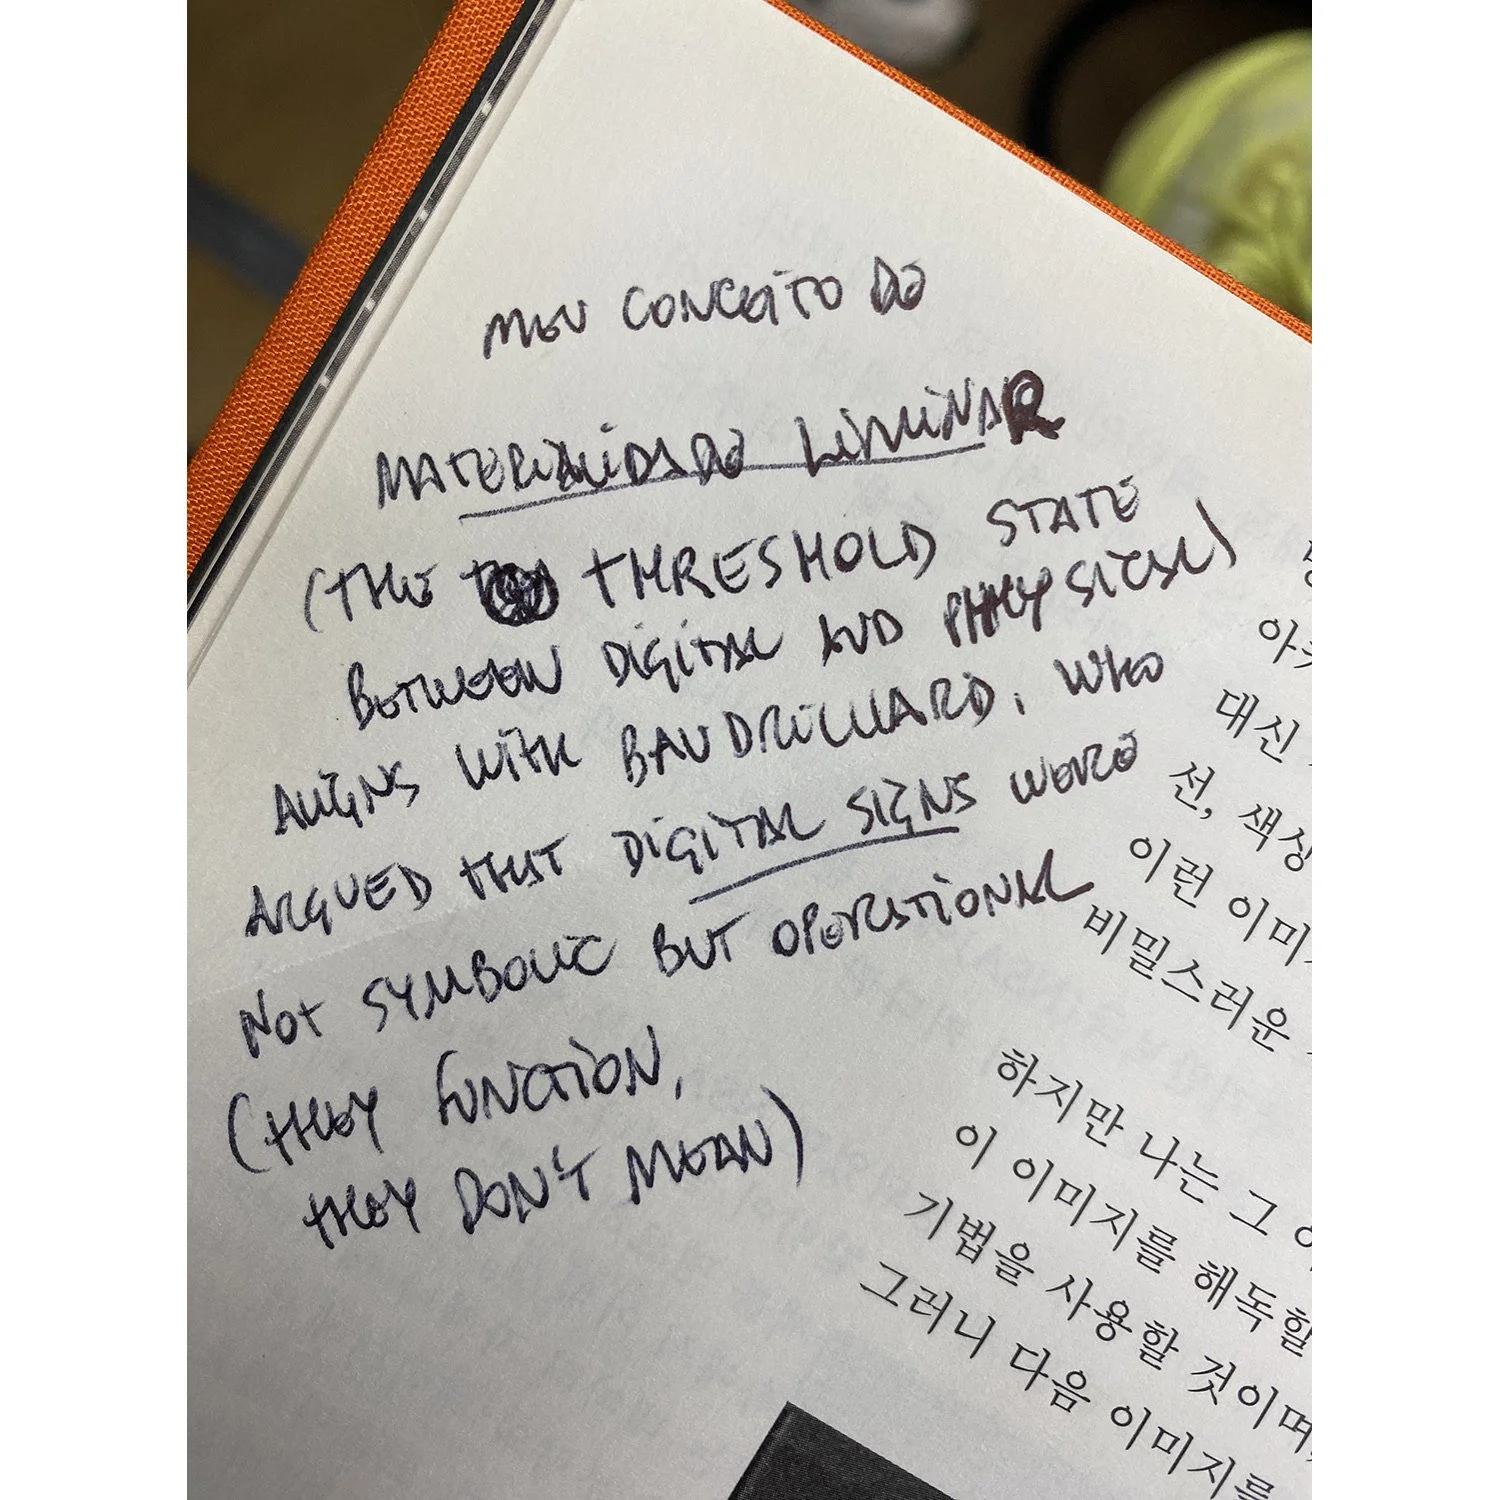 MEU CONCEITO DE
MATERIALIDADE LIMINAR
(THE THRESHOLD STATE
BETWEEN DIGITAL AND PHYSICAL)
ALIGNS WITH BAUDRILLARD, WHO
ARGUED THAT DIGITAL SIGNS WERE
NOT SYMBOLIC BUT OPERATIONAL
(THEY FUNCTION,
THEY DON'T MEAN)
대신
선, 색상
이런 이미
비밀스러운
하지만 나는 그
이 이미지를 해독할
기법을 사용할 것이며,
그러니 다음 이미지를